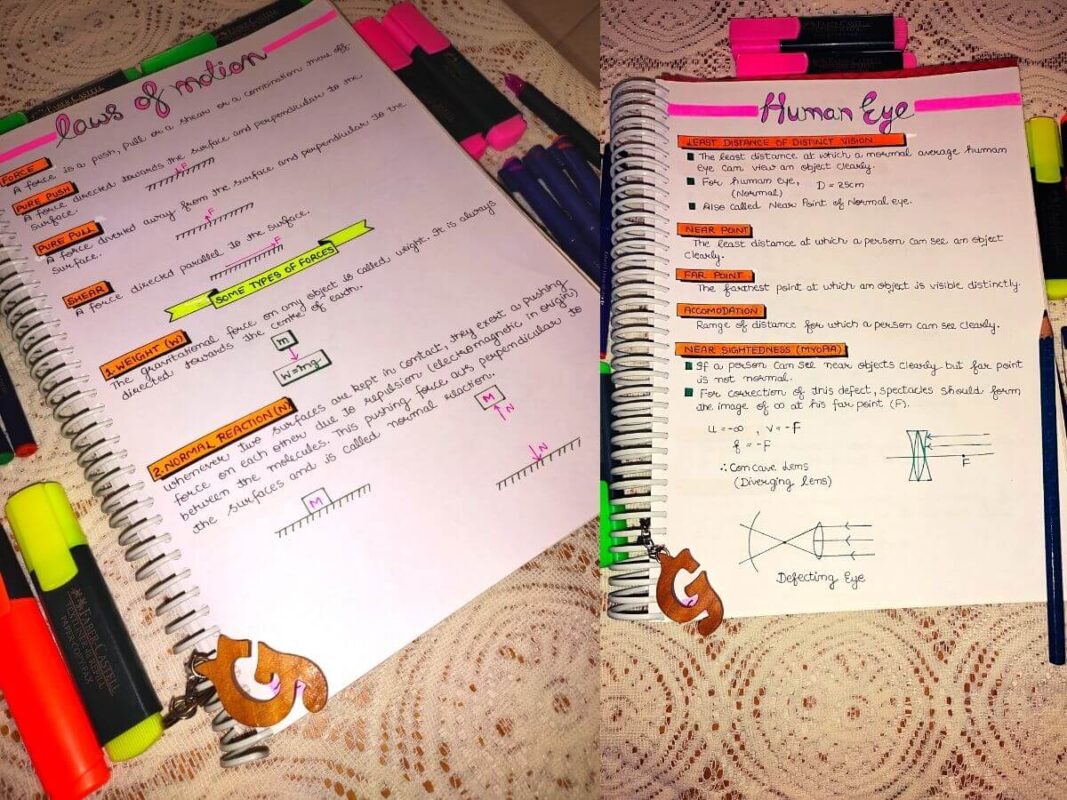 Laws of motion
FORCE
A force is a push, pull or a shear or a combination there of.
PURE PUSH
A force directed towards the surface and perpendicular to the
surface.
F
PURE PULL
A force diverted away from the surface and perpendicular to the
surface.
F
SHEAR
A force directed parallel to the surface.
F
SOME TYPES OF FORCES
1. WEIGHT (W)
The gravitational force on any object is called weight. It is always
directed towards the centre of earth.
m
W=mg
2. NORMAL REACTION (N)
whenever two surfaces are kept in contact, they exert a pushing
force on each other due to repulsion (electromagnetic in origin)
between the molecules. This pushing force acts perpendicular to
the surfaces and is called normal reaction.
M
N
M
N
FABER-CASTELL
TEXTLINER 48 REFILL
PAPER COPY FAX
Human Eye
LEAST DISTANCE OF DISTINCT VISION
The least distance at which a normal average human
eye can view an object clearly.
For human eye, D = 25cm
(Normal)
Also called Near Point of Normal eye.
NEAR POINT
The least distance at which a person can see an object
clearly.
FAR POINT
The farthest point at which an object is visible distinctly.
ACCOMODATION
Range of distance for which a person can see clearly.
NEAR SIGHTEDNESS (MYOPIA)
If a person can see near objects clearly but far point
is not normal.
For correction of this defect, spectacles should form
the image of ∞ at his far point (F).
u = -∞ , v = -F
f = -F
∴ Concave Lens
(Diverging lens)
F
Defecting Eye